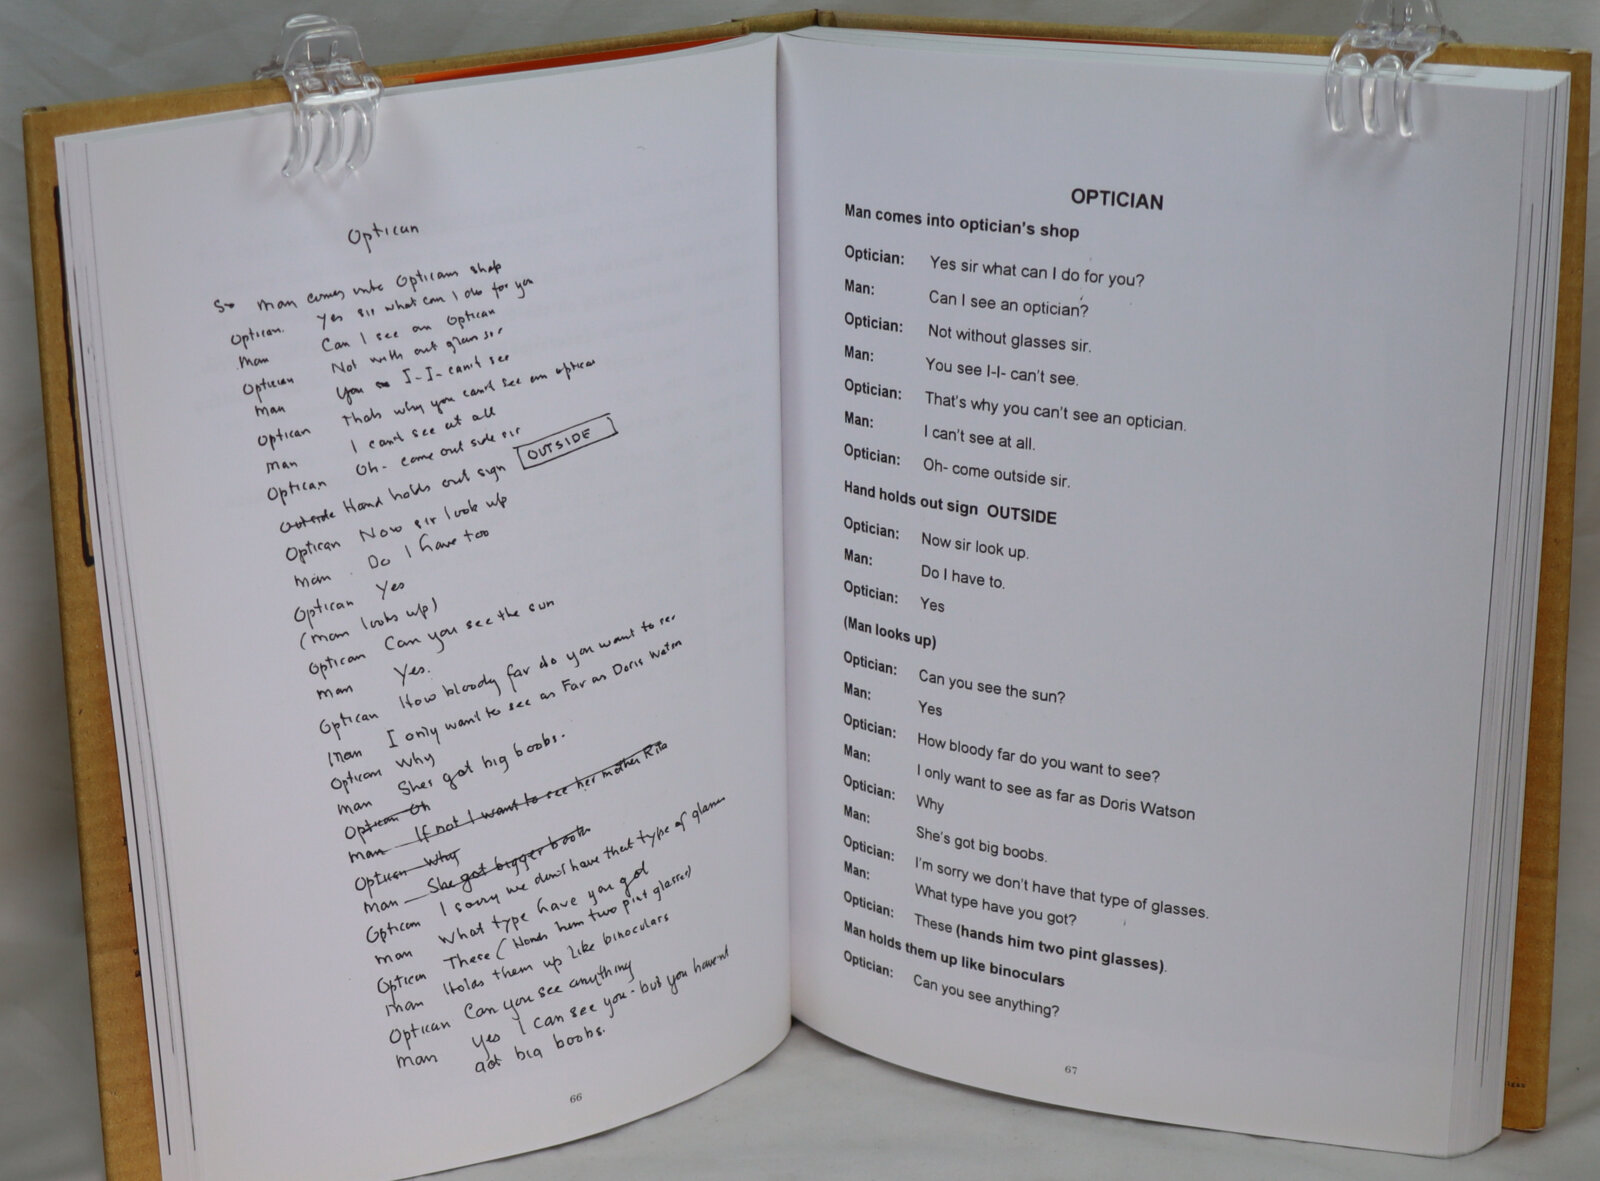 Optican
So Man comes into Opticans shop
Optican. Yes sir what can I do for you
Man Can I see an Optican
Optician Not with out glasses sir
Man You see I-I- can't see
Optican Thats why you cant see an optican
Man I cant see at all
Optican Oh- come out side sir
Outside Hand holds out sign OUTSIDE
Optican Now sir look up
Man Do I have too
Optican Yes
(Man looks up)
Optican Can you see the sun
Man Yes.
Optican How bloody far do you want to see
Man I only want to see as Far as Doris Watson
Optican Why
Man Shes got big boobs.
Optican Oh
Man If not I want to see her mother Rita
Optican Why
Man She got bigger boobs
Optican I sorry we don't have that type of glasses
Man What type have you got
Optican These (Hands him two pint glasses)
Man Holds them up like binoculars
Optican Can you see anything
Man Yes I can see you - but you havent
got big boobs.
66
OPTICIAN
Man comes into optician's shop
Optician: Yes sir what can I do for you?
Man: Can I see an optician?
Optician: Not without glasses sir.
Man: You see I-I- can't see.
Optician: That's why you can't see an optician.
Man: I can't see at all.
Optician: Oh- come outside sir.
Hand holds out sign OUTSIDE
Optician: Now sir look up.
Man: Do I have to.
Optician: Yes
(Man looks up)
Optician: Can you see the sun?
Man: Yes
Optician: How bloody far do you want to see?
Man: I only want to see as far as Doris Watson
Optician: Why
Man: She's got big boobs.
Optician: I'm sorry we don't have that type of glasses.
Man: What type have you got?
Optician: These (hands him two pint glasses).
Man holds them up like binoculars
Optician: Can you see anything?
67